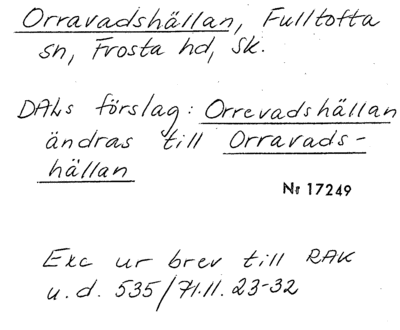 Orravadshällan, Fulltofta
sn, Frosta hd, Sk.
DALs förslag: Orrevadshällan
ändras till Orravads-
hällan
Nr 17249
Exc ur brev till RAK
u.d. 535/71.11.23-32